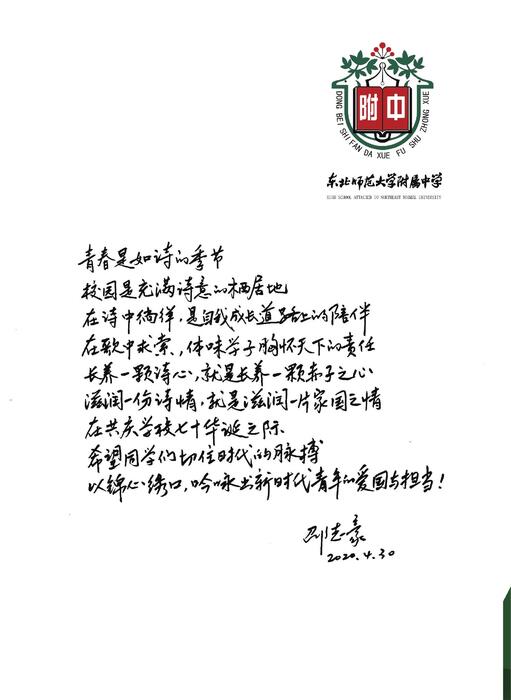 附中
DONG BEI SHI FAN DA XUE FU SHU ZHONG XUE
东北师范大学附属中学
HIGH SCHOOL ATTACHED TO NORTHEAST NORMAL UNIVERSITY
青春是如诗的季节
校园是充满诗意的栖居地
在诗中徜徉,是自我成长道路上的陪伴
在歌中求索,体味学子胸怀天下的责任
长养一颗诗心,就是长养一颗赤子之心
滋润一份诗情,就是滋润一片家国之情
在共庆学校七十华诞之际
希望同学们切住时代的脉搏
以锦心绣口,吟咏出新时代青年的爱国与担当!
邵志豪
2020.4.30